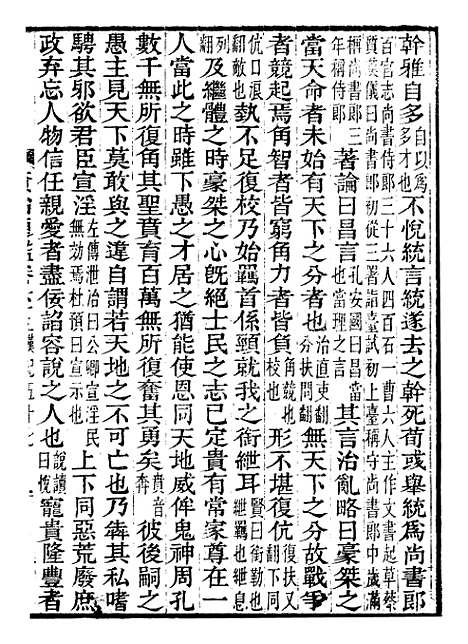 幹雅自多自以為多才也不悅統言統遂去之幹死荀彧舉統為尚書郎
百官志尚書侍郎三十六人四百石一曹六人主作文書起草蔡質漢儀曰尚書郎初從三署詣臺試初上臺稱守尚書郎中歲滿
稱尚書郎三年稱侍郎著論曰昌言孔安國曰昌當也當理之言其言治亂略曰豪桀之
當天命者未始有天下之分者也治直吏翻分扶問翻無天下之分故戰爭
者競起焉角智者皆窮角力者皆負角競也校也形不堪復伉復扶又翻
伉口浪翻敵也埶不足復校乃始羈首係頸就我之銜紲耳賢曰銜勒也紲羈也紲息
列翻及繼體之時豪桀之心既絕士民之志已定貴有常家尊在一
人當此之時雖下愚之才居之猶能使恩同天地威侔鬼神周孔
數千無所復角其聖賁育百萬無所復奮其勇矣賁音奔彼後嗣之
愚主見天下莫敢與之違自謂若天地之不可亡也乃犇其私嗜
騁其邪欲君臣宣淫左傳泄冶曰公卿宣淫民無効焉杜預曰宣示也上下同惡荒廢庶
政弃忘人物信任親愛者盡佞諂容說之人也說讀曰悅寵貴隆豐者